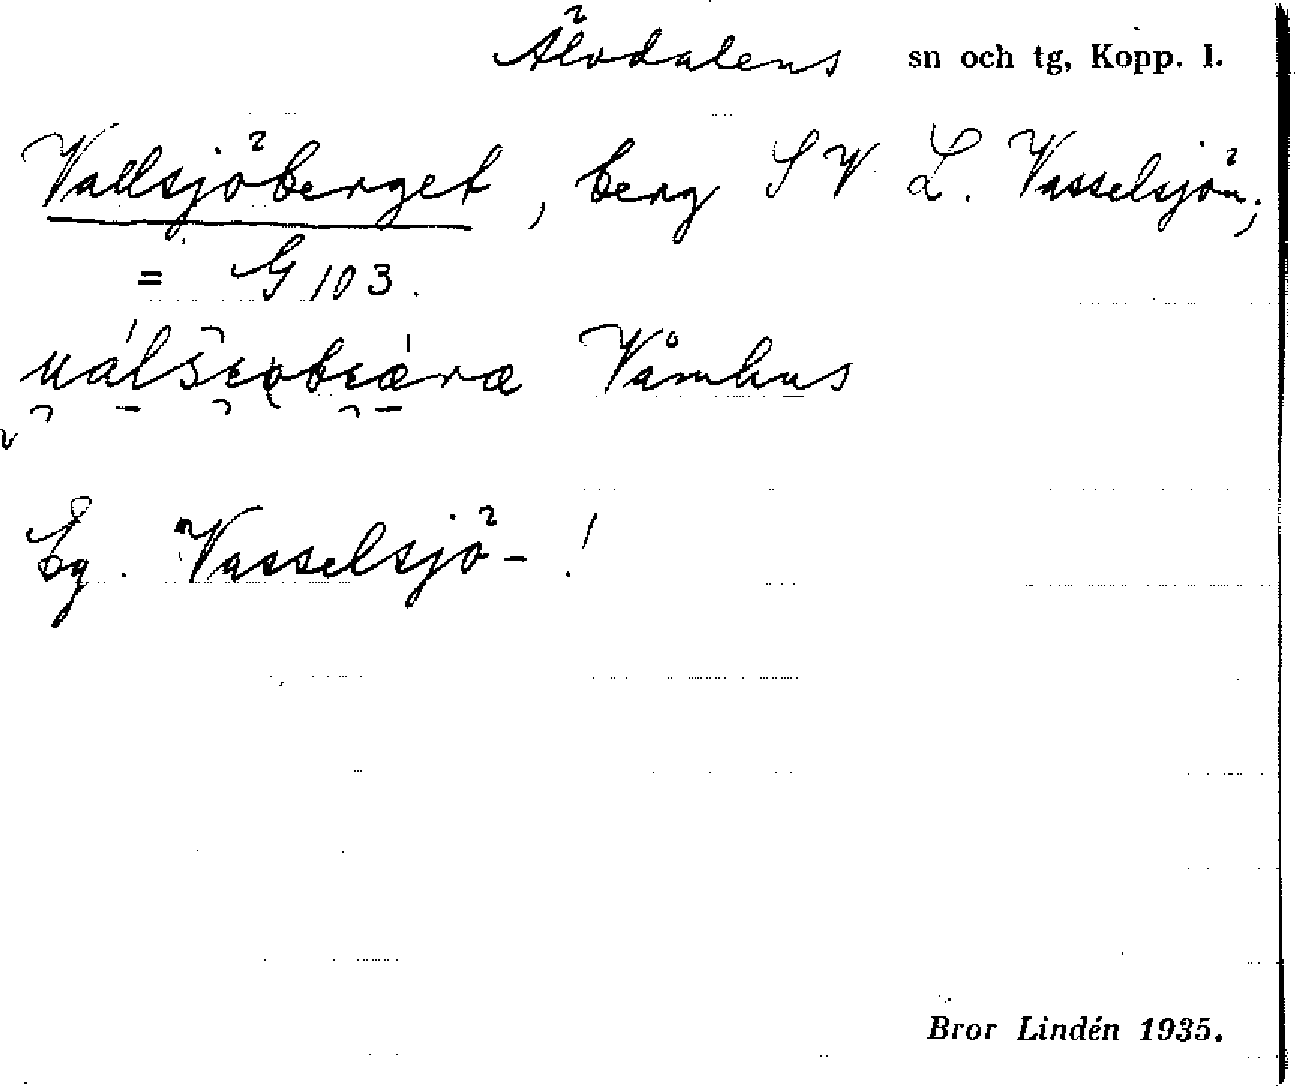 Älvdalens sn och tg, Kopp. l.
Vallsjöberget, berg SV L. Vasselsjön;
= G 103.
Våmhus
Eg. Vasselsjö- !
Bror Lindén 1935.